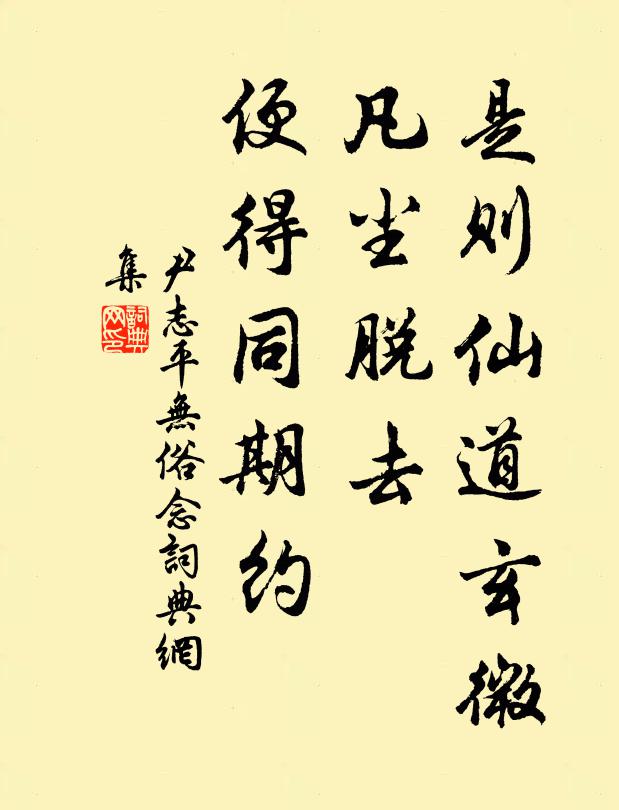 是则仙道玄微
凡尘脱去
便得同期约
尹志平無俗念詞典網
集
詞典
网印